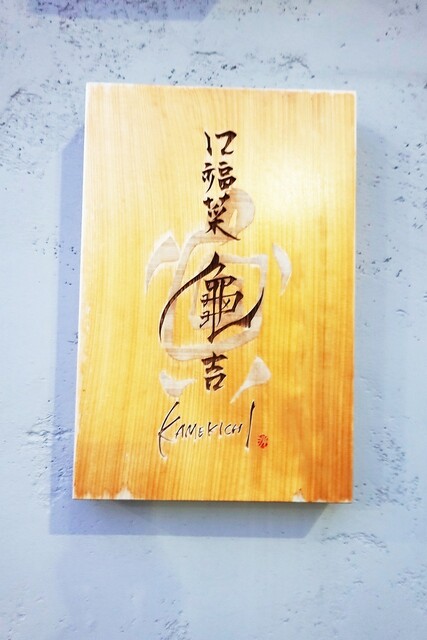 口福菜 龜吉
KAMEKICHI